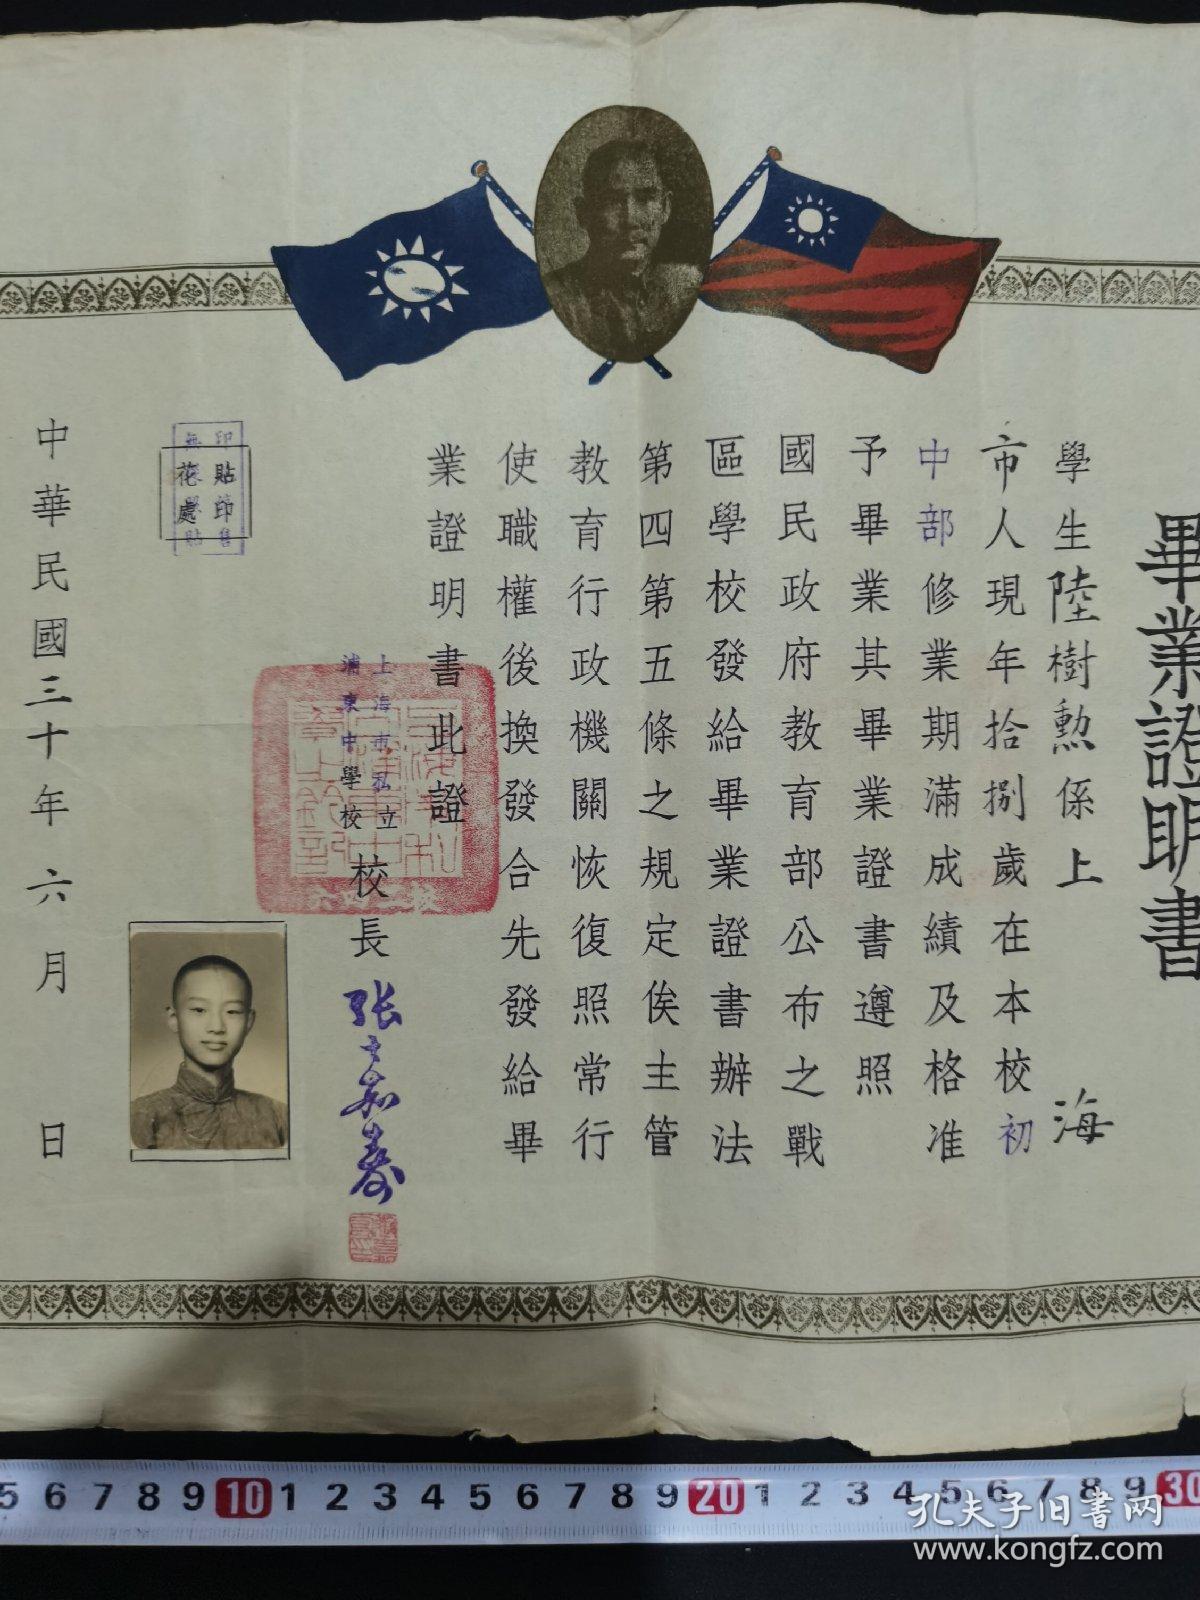 畢業證明書
學生陸樹勲係上海
市人現年拾捌歲在本校初
中部修業期滿成績及格准
予畢業其畢業證書遵照
國民政府教育部公布之戰
區學校發給畢業證書辦法
第四第五條之規定俟主管
教育行政機關恢復照常行
使職權後換發合先發給畢
業證明書此證
上海市私立
浦東中學校
校長
貼印
花處
中華民國三十年六月日
5 6 7 8 9 10 1 2 3 4 5 6 7 8 9 20 1 2 3 4 5 6 7 8 9 30
孔夫子旧书网
www.kongfz.com